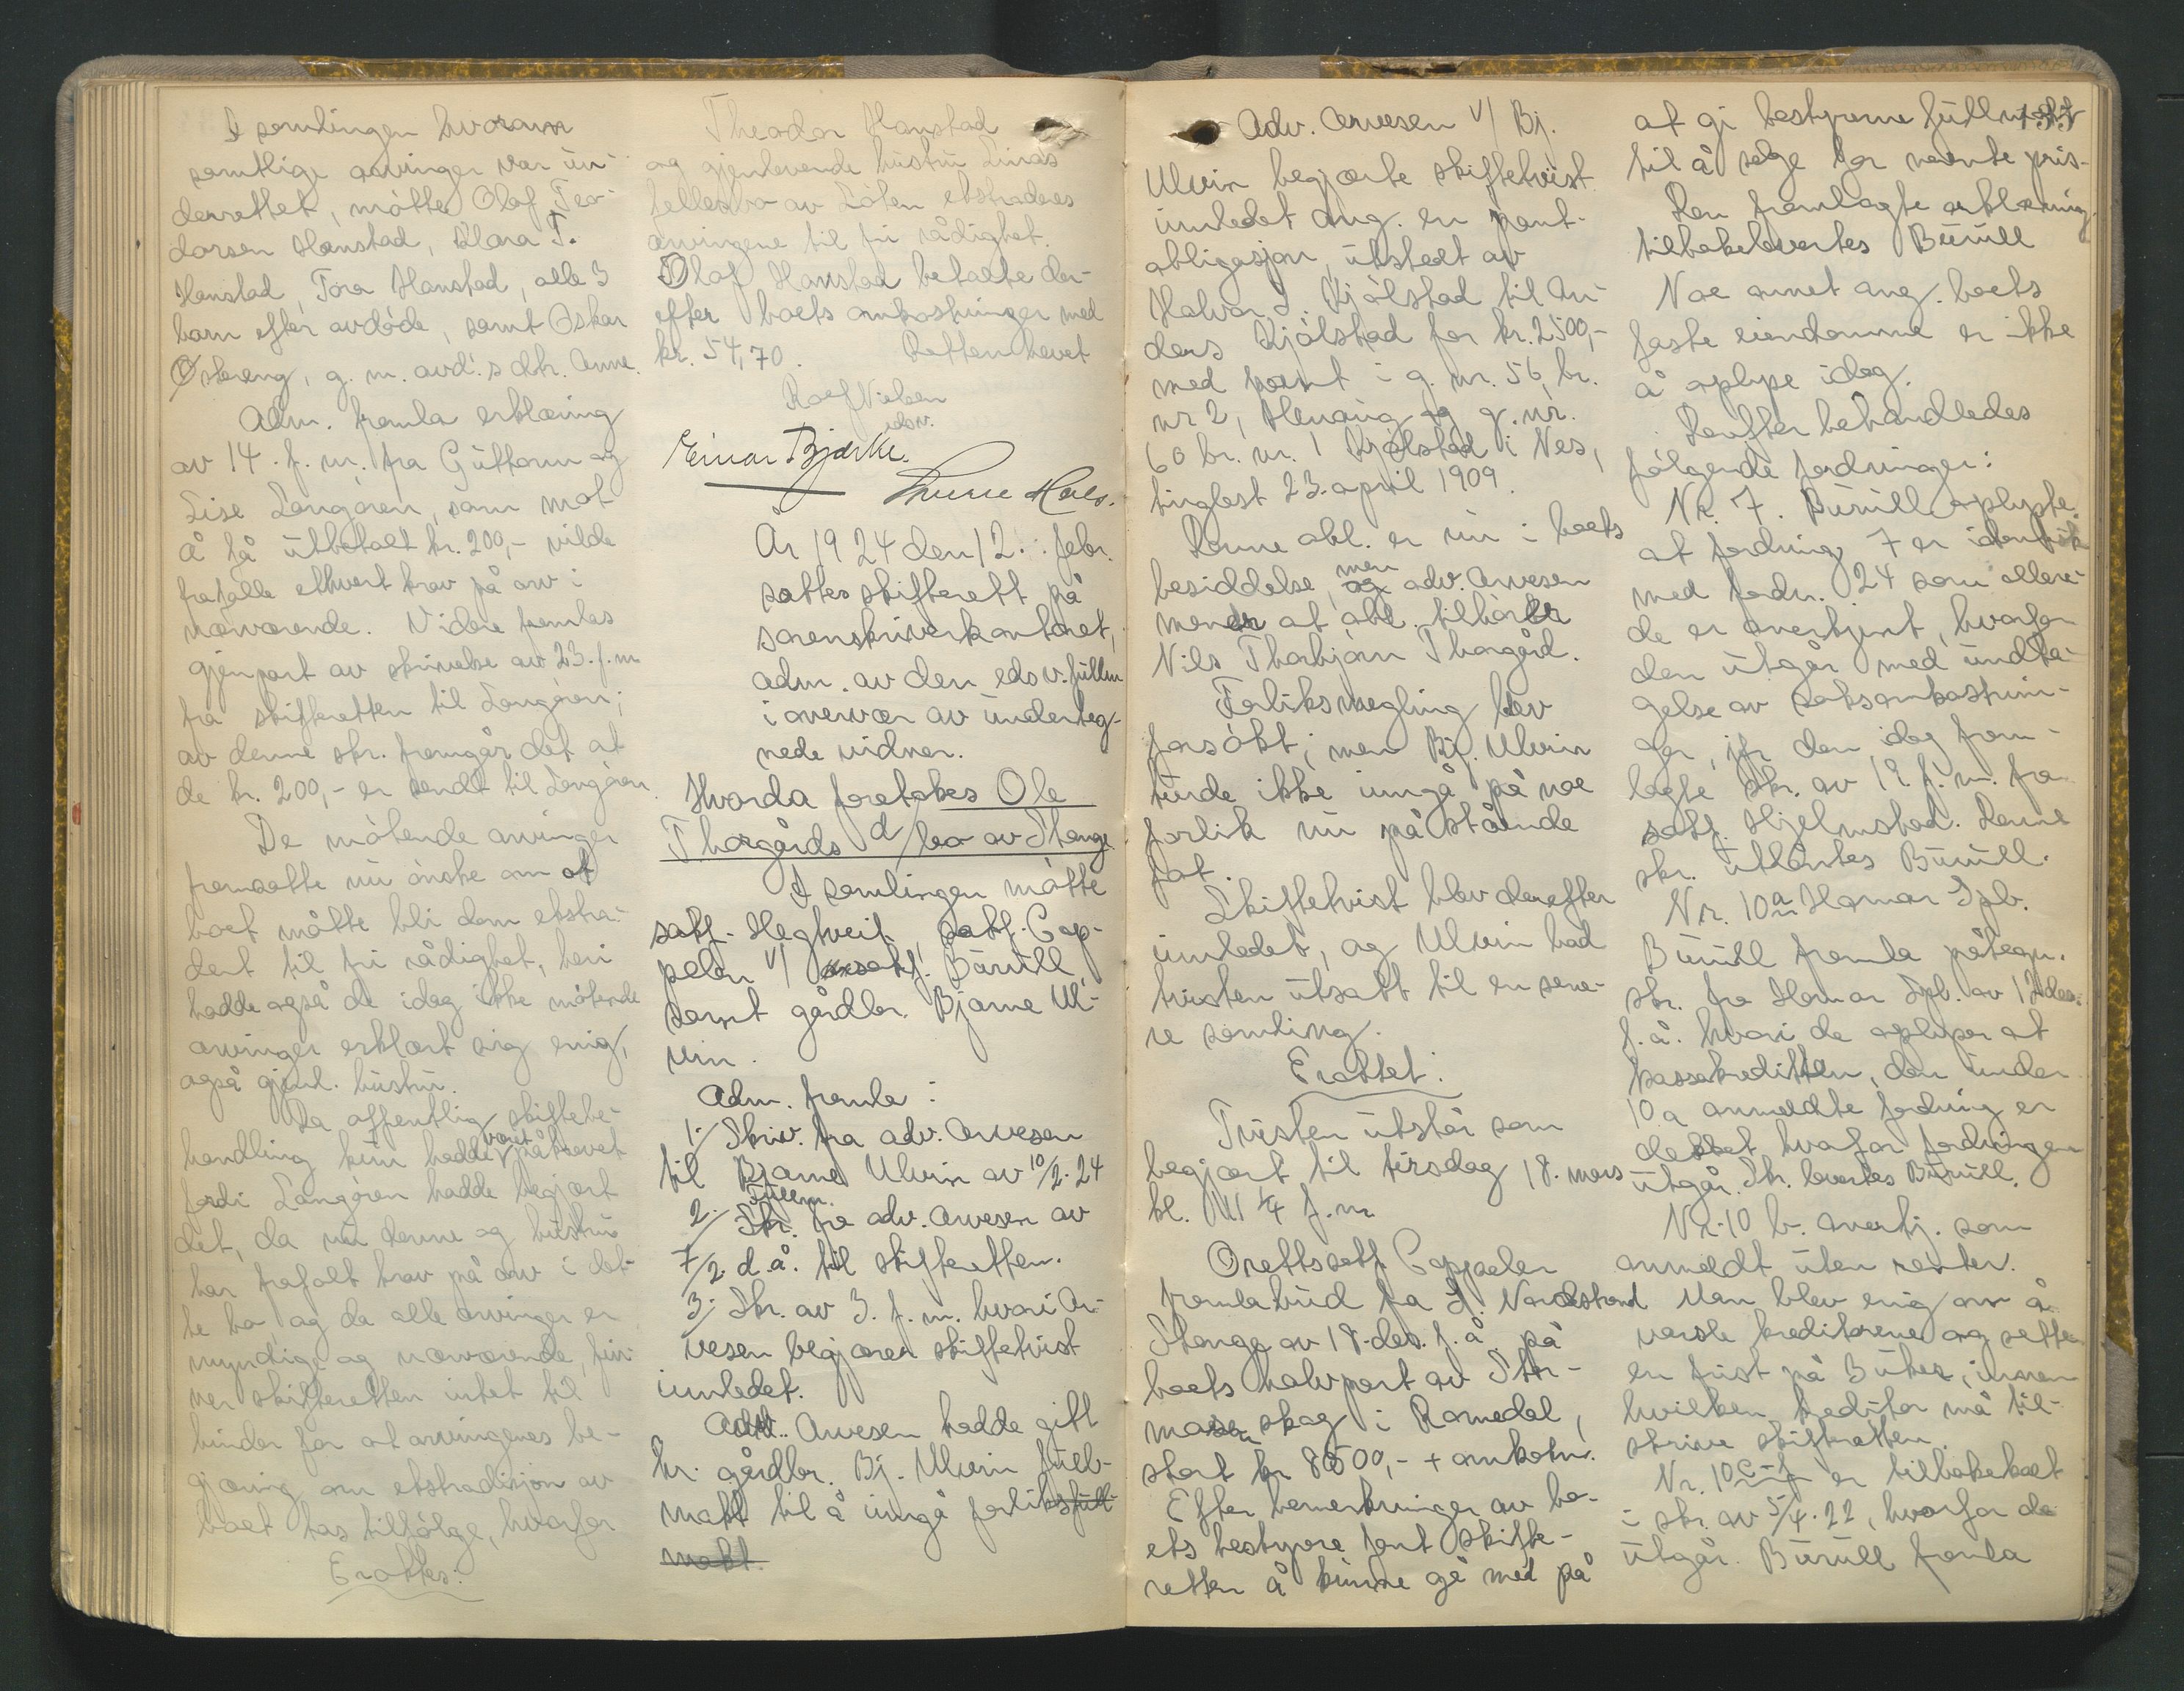 I samlingen hvorom
samtlige arvinger var un-
derrettet, møtte Olaf Teo-
dorsen Hanstad, Klara T.
Hanstad, Tora Hanstad, alle 3
barn efter avdøde, samt Oskar
Østereng, g. m. avd.s dtr. Anne.
Adm. fremla erklæring
av 14. f. m. fra Guttorm og
Lise Langøren, som mot
å få utbetalt kr. 200,- vilde
frafalle ethvert krav på arv i
nærværende. Videre fremlas
gjenpart av skrivelse av 23. f. m.
fra skifteretten til Langøren;
av denne skr. fremgår det at
de kr. 200,- er sendt til Langøren.
De møtende arvinger
fremsatte nu ønske om at
boet måtte bli dem ekstra-
dert til fri rådighet, heri
hadde også de idag ikke møtende
arvinger erklært sig enig,
også gjenl. hustru.
Da offentlig skiftebe-
handling kun hadde vært påkrevet
fordi Langøren hadde begjært
det, da nu denne og hustru
har frafalt krav på arv i det-
te bo og da alle arvinger er
myndige og nærværende, fin-
ner skifteretten intet til
hinder for at arvingenes be-
gjæring om ekstradisjon av
boet tas tilfølge, hvorfor
Erattes:
Theodor Hanstad
og gjenlevende hustru Linas
fellesbo av Løten ekstraderes
arvingene til fri rådighet.
Olaf Hanstad betalte der-
efter boets omkostninger med
kr. 54,70. Retten hevet
Roef Nielsen
edsv.
Einar Bjørke.
År 1924 den 12. febr.
sattes skifterett på
sorenskriverkontoret,
adm. av den edsv. fullm
i overvær av underteg-
nede vidner.
Hvorda foretokes Ole
Thorgårds d/bo av Stange
I samlingen møtte
sakf. Hegtveit, sakf. Cap-
pelen v/ sakf. Burull,
samt gårdbr. Bjarne Ul-
vin.
Adm. fremla:
1./ Skriv. fra adv. Arvesen
til Bjarne Ulvin av 10/2.24
2./ Fullm. fra adv. Arvesen av
7/2. d.å. til skifteretten.
3./ Skr. av 3. f. m. hvori Ar-
vesen begjærer skiftetvist
innledet.
Adv. Arvesen hadde gitt
hr. gårdbr. Bj. Ulvin full-
makt til å inngå forliksfull-
makt.
Adv. Arvesen v/ Bj.
Ulvin begjærte skiftetvist
innledet ang. en pant-
obligasjon, utstedt av
Halvor J. Kjølstad til An-
ders Kjølstad for kr. 2500,-
med pant i g. nr. 56, br.
nr 2, Henaug og g. nr.
60 br. nr. 1 Kjølstad i Nes,
tinglest 23. april 1909.
Denne obl. er nu i boets
besiddelse, og men adv. Arvesen
mener at obl. tilhører
Nils Thorbjørn Thorgård.
Forliksmegling blev
forsøkt; men Bj. Ulvin
turde ikke inngå på noe
forlik nu på stående
fot.
Skiftetvist blev derefter
innledet, og Ulvin bad
tvisten utsatt til en sene-
re samling.
Erattet:
Tvisten utstår som
begjært til tirsdag 18. mars
kl. 11 1/4 f. m.
Orettssakf. Cappelen
fremla bud fra J. Nordstrand
Stange av 18. des. f. å. på
boets halvpart av Stor-
masen skog i Romedal,
stort kr 8500,- + omkostn.
Efter bemerkninger av bo-
ets bestyrere fant skifte-
retten å kunne gå med på
135
at gi bestyrerne fullmakt
til å selge for nevnte pris.
Den fremlagte erklæring
tilbakelevertes Burull
Noe annet ang. boets
faste eiendomme er ikke
å oplyse idag.
Derefter behandledes
følgende fordringer:
Nr. 7. Burull oplyste
at fordring 7 er identisk
med fordr. 24 som allere-
de er anerkjent, hvorfor
den utgår med undta-
gelse av saksomkostnin-
ger, jfr. den idag frem-
lagte skr. av 19. f. m. fra
sakf. Hjelmstad. Denne
skr. utlåntes Burull.
Nr. 10a Hamar Spb.
Burull fremla påtegn.
skr. fra Hamar Spb. av 12 des.
f. å. hvori de oplyser at
kassakreditten, den under
10a anmeldte fordring er
dekket hvorfor fordringen
utgår. Skr. levertes Burull.
Nr. 10 b. anerkj. som
anmeldt uten renter.
Man blev enig om å
varsle kreditorene og sette
en frist på 3 uker, innen
hvilken kreditor må til-
skrive skifteretten.
Nr. 10 c-f er tilbakekalt
i skr. av 5/4.22, hvorfor de
utgår. Burull fremla